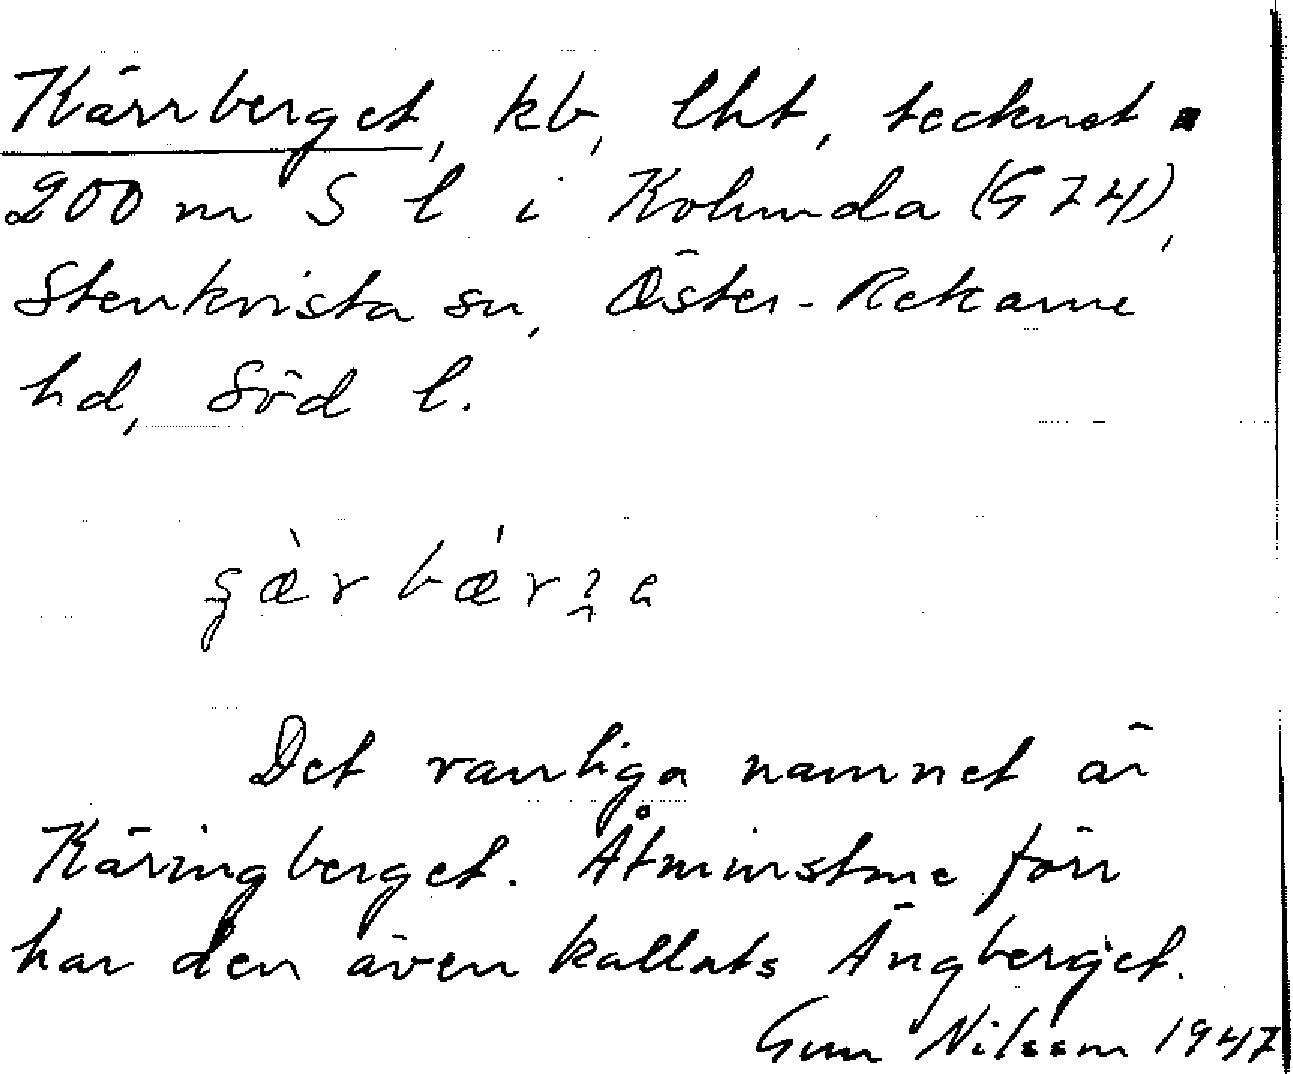 Kärrberget, kb, lht, tecknat ▪
200 m S l i Kolunda (G 74),
Stenkvista sn, Öster-Rekarne
hd, Söd l.
Det vanliga namnet är
Käringberget. Åtminstone förr
har den även kallats Ängberget.
Gun Nilsson 1947